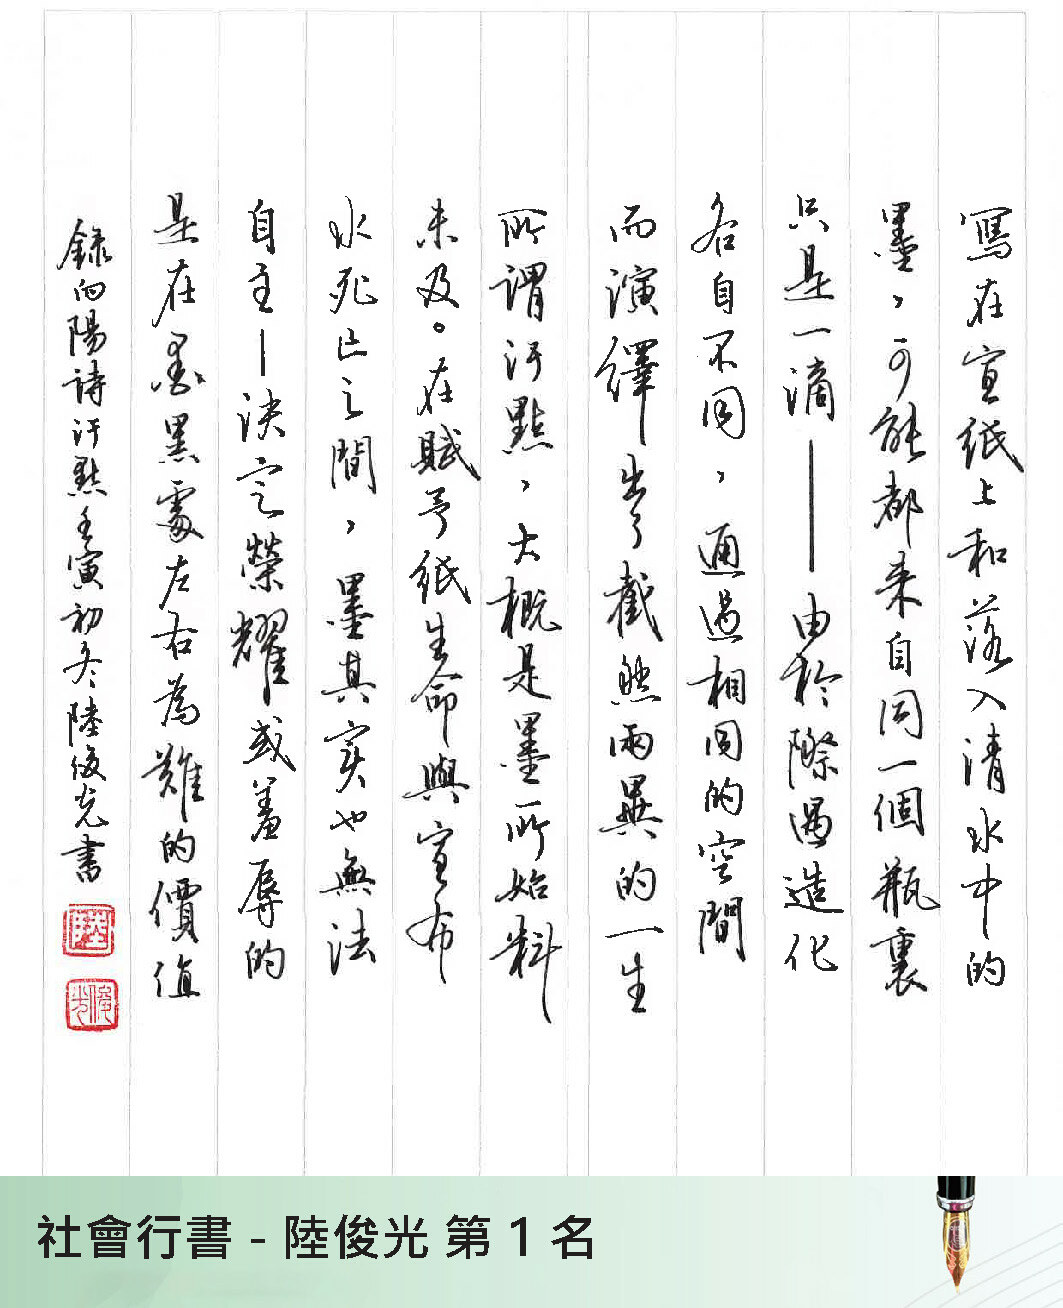 寫在宣紙上和落入清水中的
墨，可能都來自同一個瓶裏
只是一滴——由於際遇造化
各自不同，通過相同的空間
而演繹出了截然兩異的一生
所謂汙點，大概是墨所始料
未及。在賦予紙生命與宣布
水死亡之間，墨其實也無法
自主—決定榮耀或羞辱的
是在墨黑處左右為難的價值
錄向陽詩汙點壬寅初冬陸俊光書
陸
俊光
社會行書 - 陸俊光 第 1 名